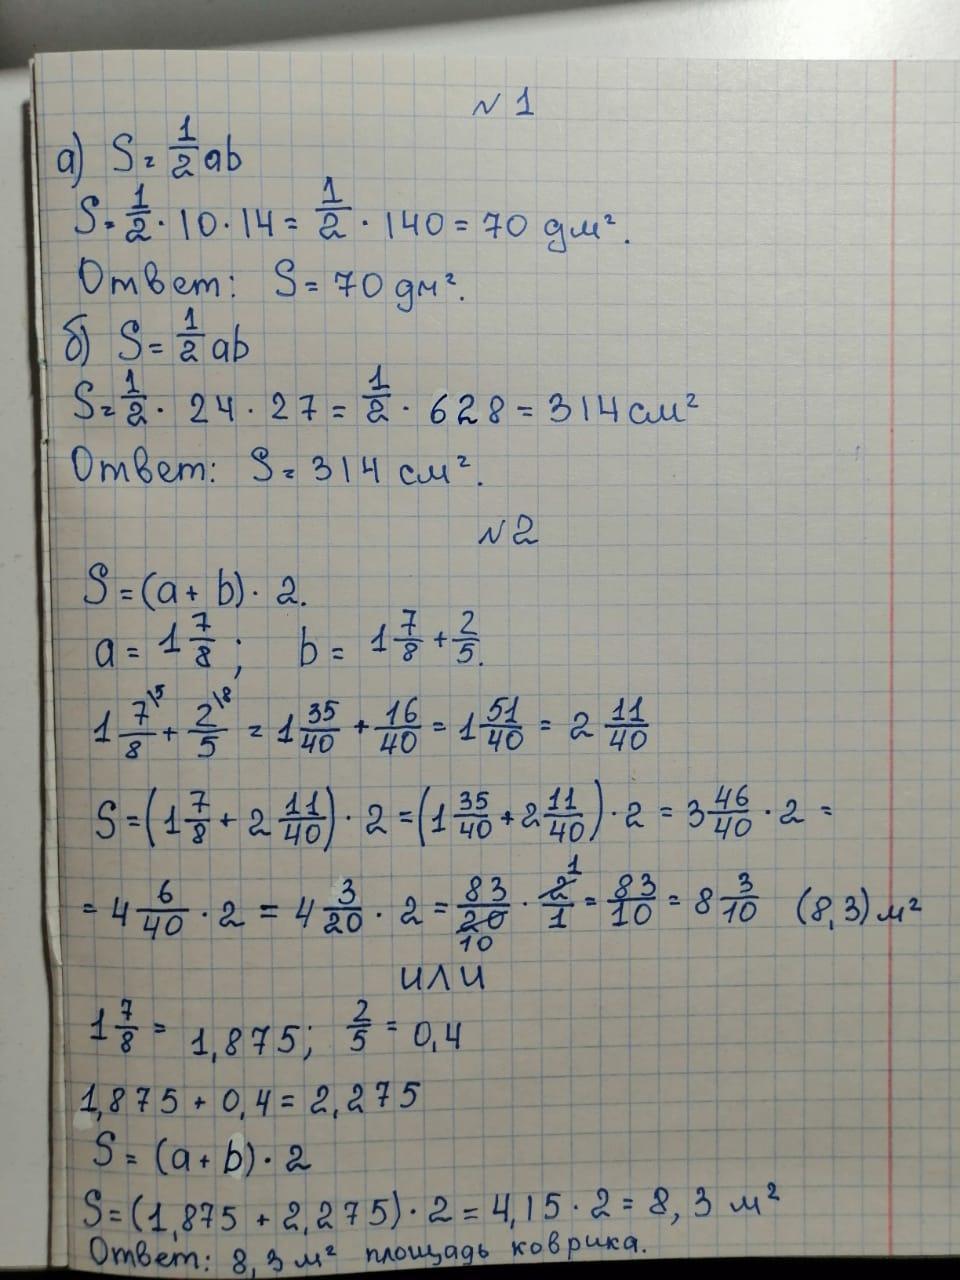 №1
а) S = 1/2 ab
S = 1/2 · 10 · 14 = 1/2 · 140 = 70 дм².
Ответ: S = 70 дм².
б) S = 1/2 ab
S = 1/2 · 24 · 27 = 1/2 · 628 = 314 см²
Ответ: S = 314 см².
№2
S = (a + b) · 2.
a = 1 7/8 ; b = 1 7/8 + 2/5.
1 7/8 \5 + 2/5 \8 = 1 35/40 + 16/40 = 1 51/40 = 2 11/40
S = (1 7/8 + 2 11/40) · 2 = (1 35/40 + 2 11/40) · 2 = 3 46/40 · 2 =
= 4 6/40 · 2 = 4 3/20 · 2 = 83/20 10 · 2/1 1 = 83/10 = 8 3/10 (8,3) м²
ИЛИ
1 7/8 = 1,875; 2/5 = 0,4
1,875 + 0,4 = 2,275
S = (a + b) · 2
S = (1,875 + 2,275) · 2 = 4,15 · 2 = 8,3 м²
Ответ: 8,3 м² площадь коврика.